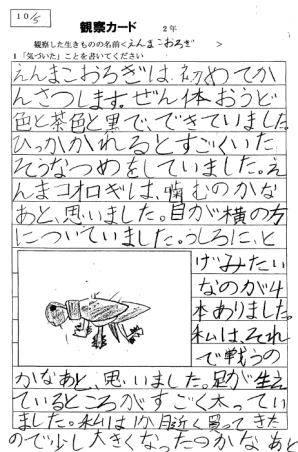 10/5
観察カード 2年
観察した生きものの名前<えんまこおろぎ >
1「気づいた」ことを書いてください
えんまこおろぎは、初めてか
んさつします。ぜん体おうど
色と茶色と黒で、できていました。
ひっかかれるとすごくいた
そうなつめをしていました。え
んまコオロギは、噛むのかな
あと、思いました。目が横の方
についていました。うしろに、と
げみたい
なのが4
本ありました。
私は、それ
で戦うの
かなあと、思いました。足が生え
ているところがすごく太ってい
ました。私は1か月近く買ってきた
ので少し大きくなったのかな あと